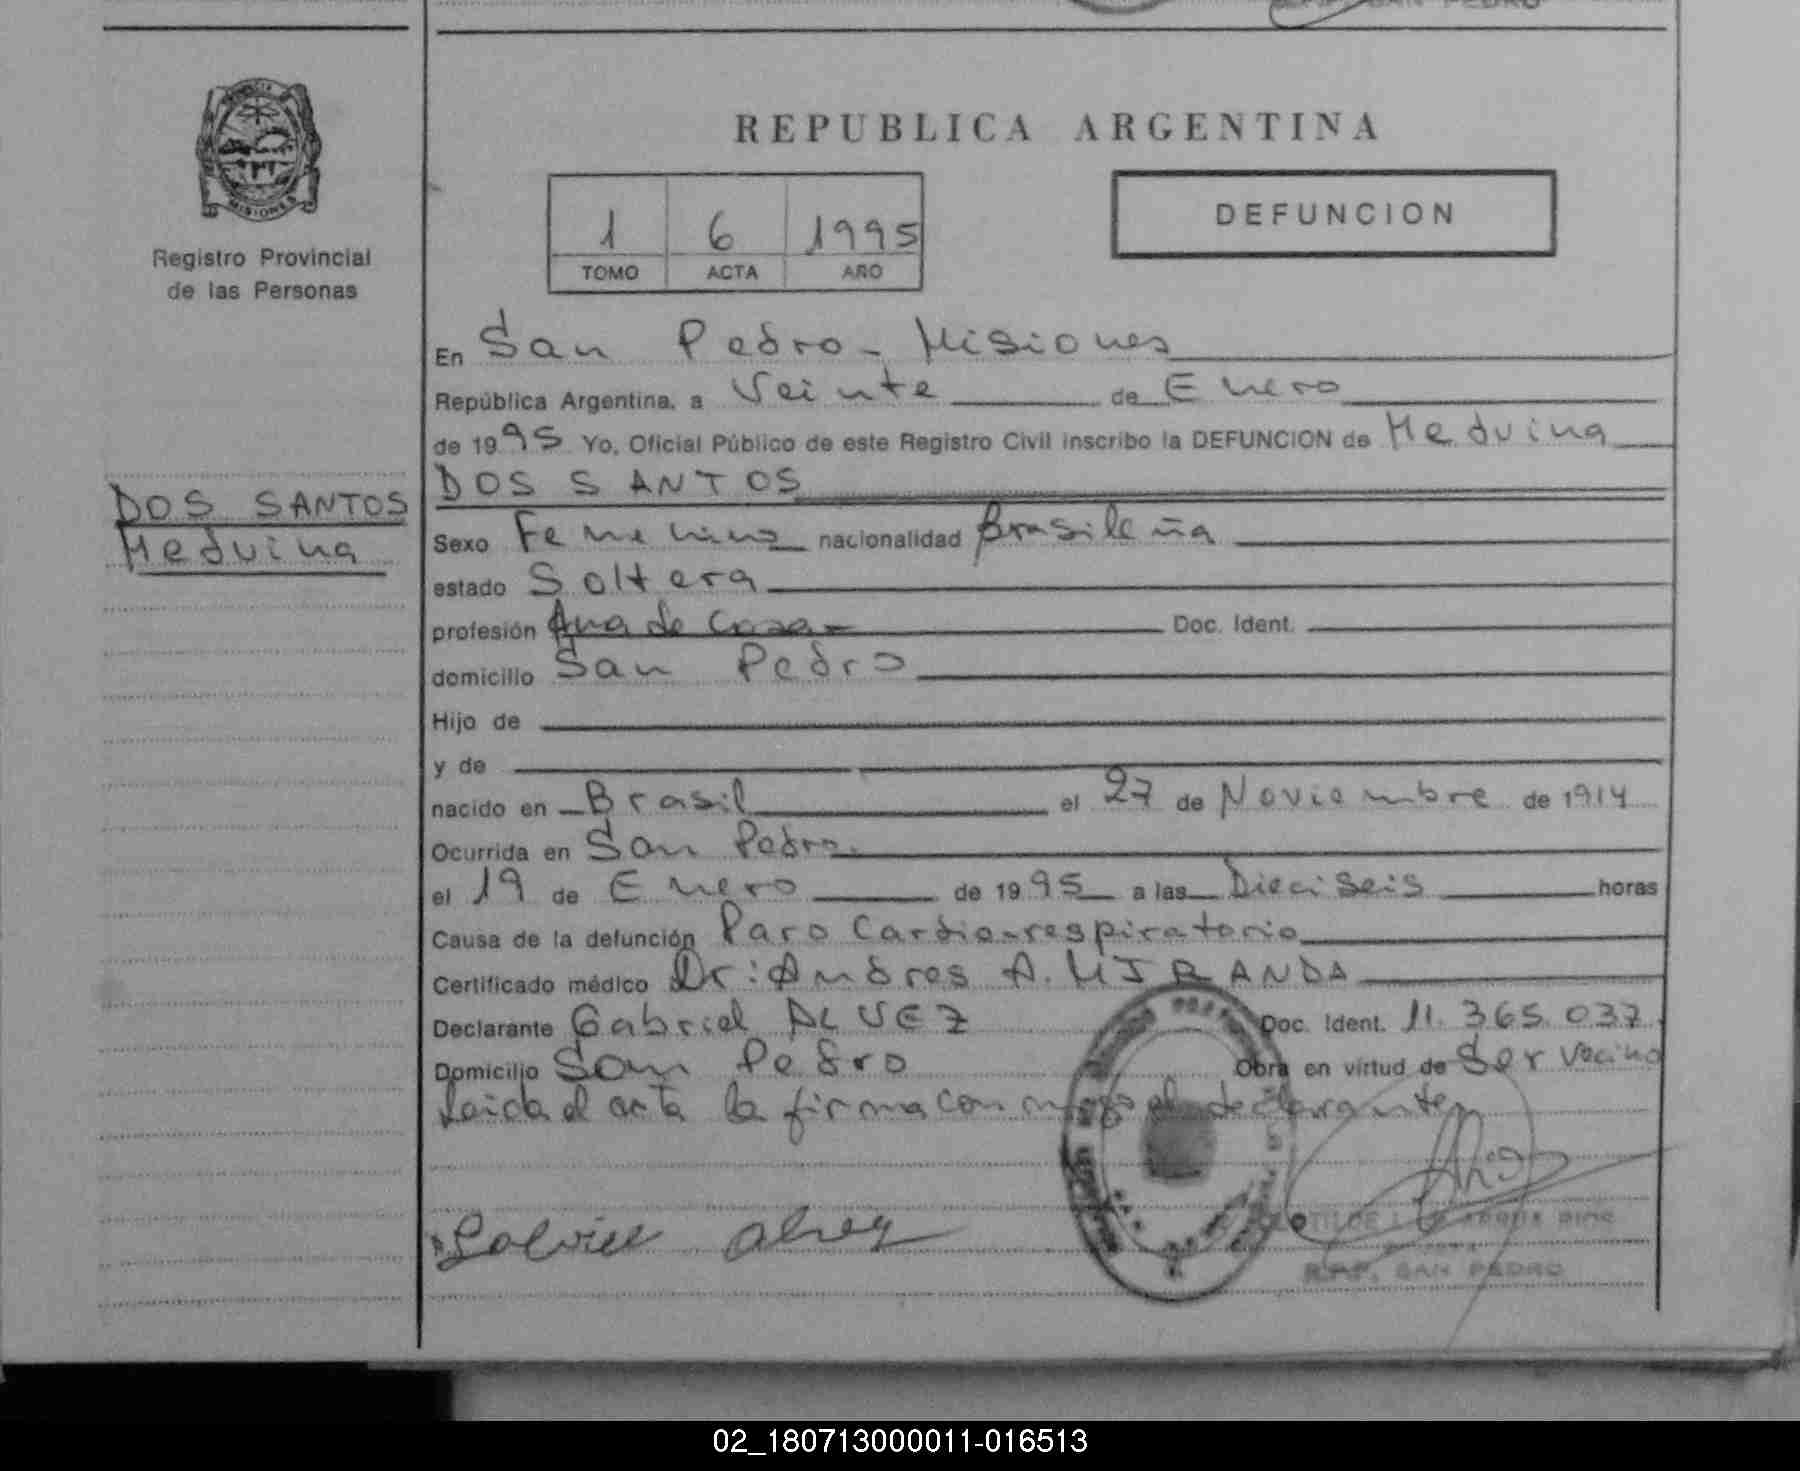 SAN PEDRO
MISIONES
Registro Provincial
de las Personas
DOS SANTOS
Meduina
REPUBLICA ARGENTINA
1 6 1995
TOMO ACTA AÑO
DEFUNCION
En San Pedro - Misiones
República Argentina, a Veinte de Enero
de 1995 Yo, Oficial Público de este Registro Civil inscribo la DEFUNCION de Meduina
DOS SANTOS
Sexo Femenino nacionalidad Brasileña
estado Soltera
profesión Ama de Casa Doc. Ident.
domicilio San Pedro
Hijo de
y de
nacido en Brasil el 27 de Noviembre de 1914
Ocurrida en San Pedro.
el 19 de Enero de 1995 a las Dieciseis horas
Causa de la defunción Paro Cardio-respiratorio
Certificado médico Dr: Andres A. MIRANDA
Declarante Gabriel ALVEZ Doc. Ident. 11.365.037
Domicilio San Pedro Obra en virtud de Ser vecino
Leida el acta la firma con migo el declarante
R.P.P. SAN PEDRO
02_180713000011-016513